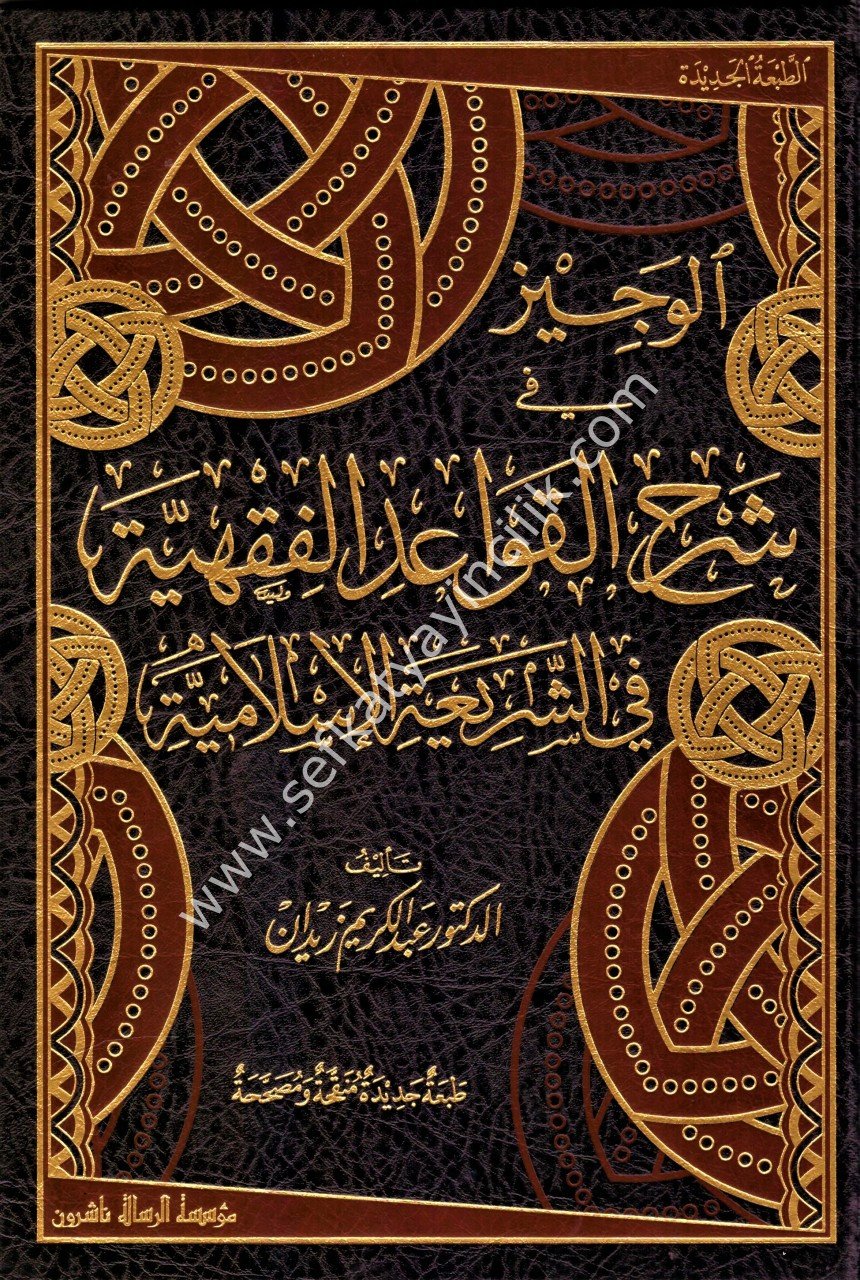 الطَّبْعَةُ الجَدِيْدَة
الوَجِيْز
في
شَرْحِ القَوَاعِدِ الفِقْهِيَّةِ
في الشَّرِيْعَةِ الإِسْلَامِيَّةِ
تَأْلِيْفُ
الدكتور عَبْد الكَرِيم زَيْدَان
طَبْعَةٌ جَدِيْدَةٌ مُنَقَّحَةٌ وَمُصَحَّحَةٌ
مؤسسة الرسالة ناشرون
www.sefkatyayincilik.com